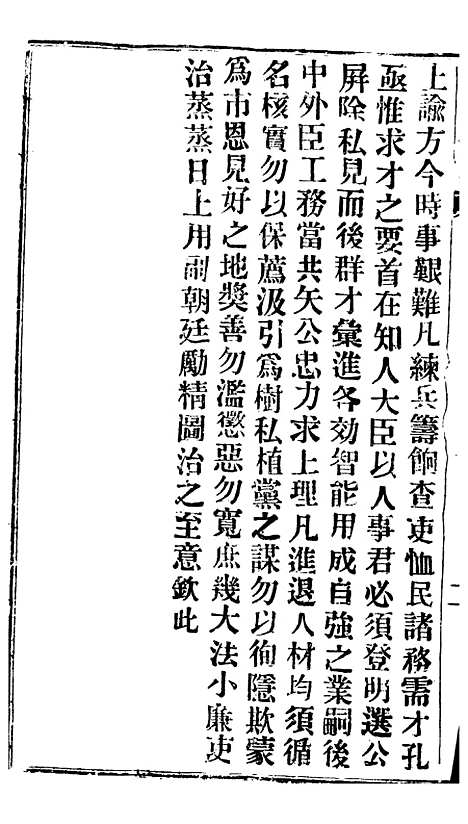 上諭方今時事艱難凡練兵籌餉查吏恤民諸務需才孔
亟惟求才之要首在知人大臣以人事君必須登明選公
屏除私見而後群才彙進各効智能用成自強之業嗣後
中外臣工務當共矢公忠力求上理凡進退人材均須循
名核實勿以保薦汲引爲樹私植黨之謀勿以徇隱欺蒙
爲市恩見好之地獎善勿濫懲惡勿寬庶幾大法小廉吏
治蒸蒸日上用副朝廷勵精圖治之至意欽此